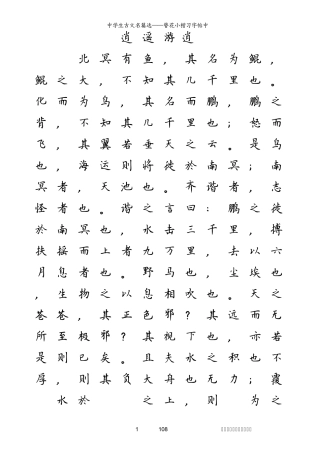 中学生古文名篇选——簪花小楷习字帖中
逍遥游逍
北冥有鱼，其名为鲲，
鲲之大，不知其几千里也。
化而为鸟，其名而鹏，鹏之
背，不知其几千里也；怒而
飞，其翼若垂天之云。是鸟
也，海运则将徙於南冥；南
冥者，天池也。齐谐者，志
怪者也。谐之言曰：鹏之徙
於南冥也，水击三千里，搏
扶摇而上者九万里，去以六
月息者也。野马也，尘埃也
，生物之以息相吹也。天之
苍苍，其正色邪？其远而无
所至极邪？其视下也，亦若
是则已矣。且夫水之积也不
厚，则其负大舟也无力；覆
水於之上，则为之
1 108